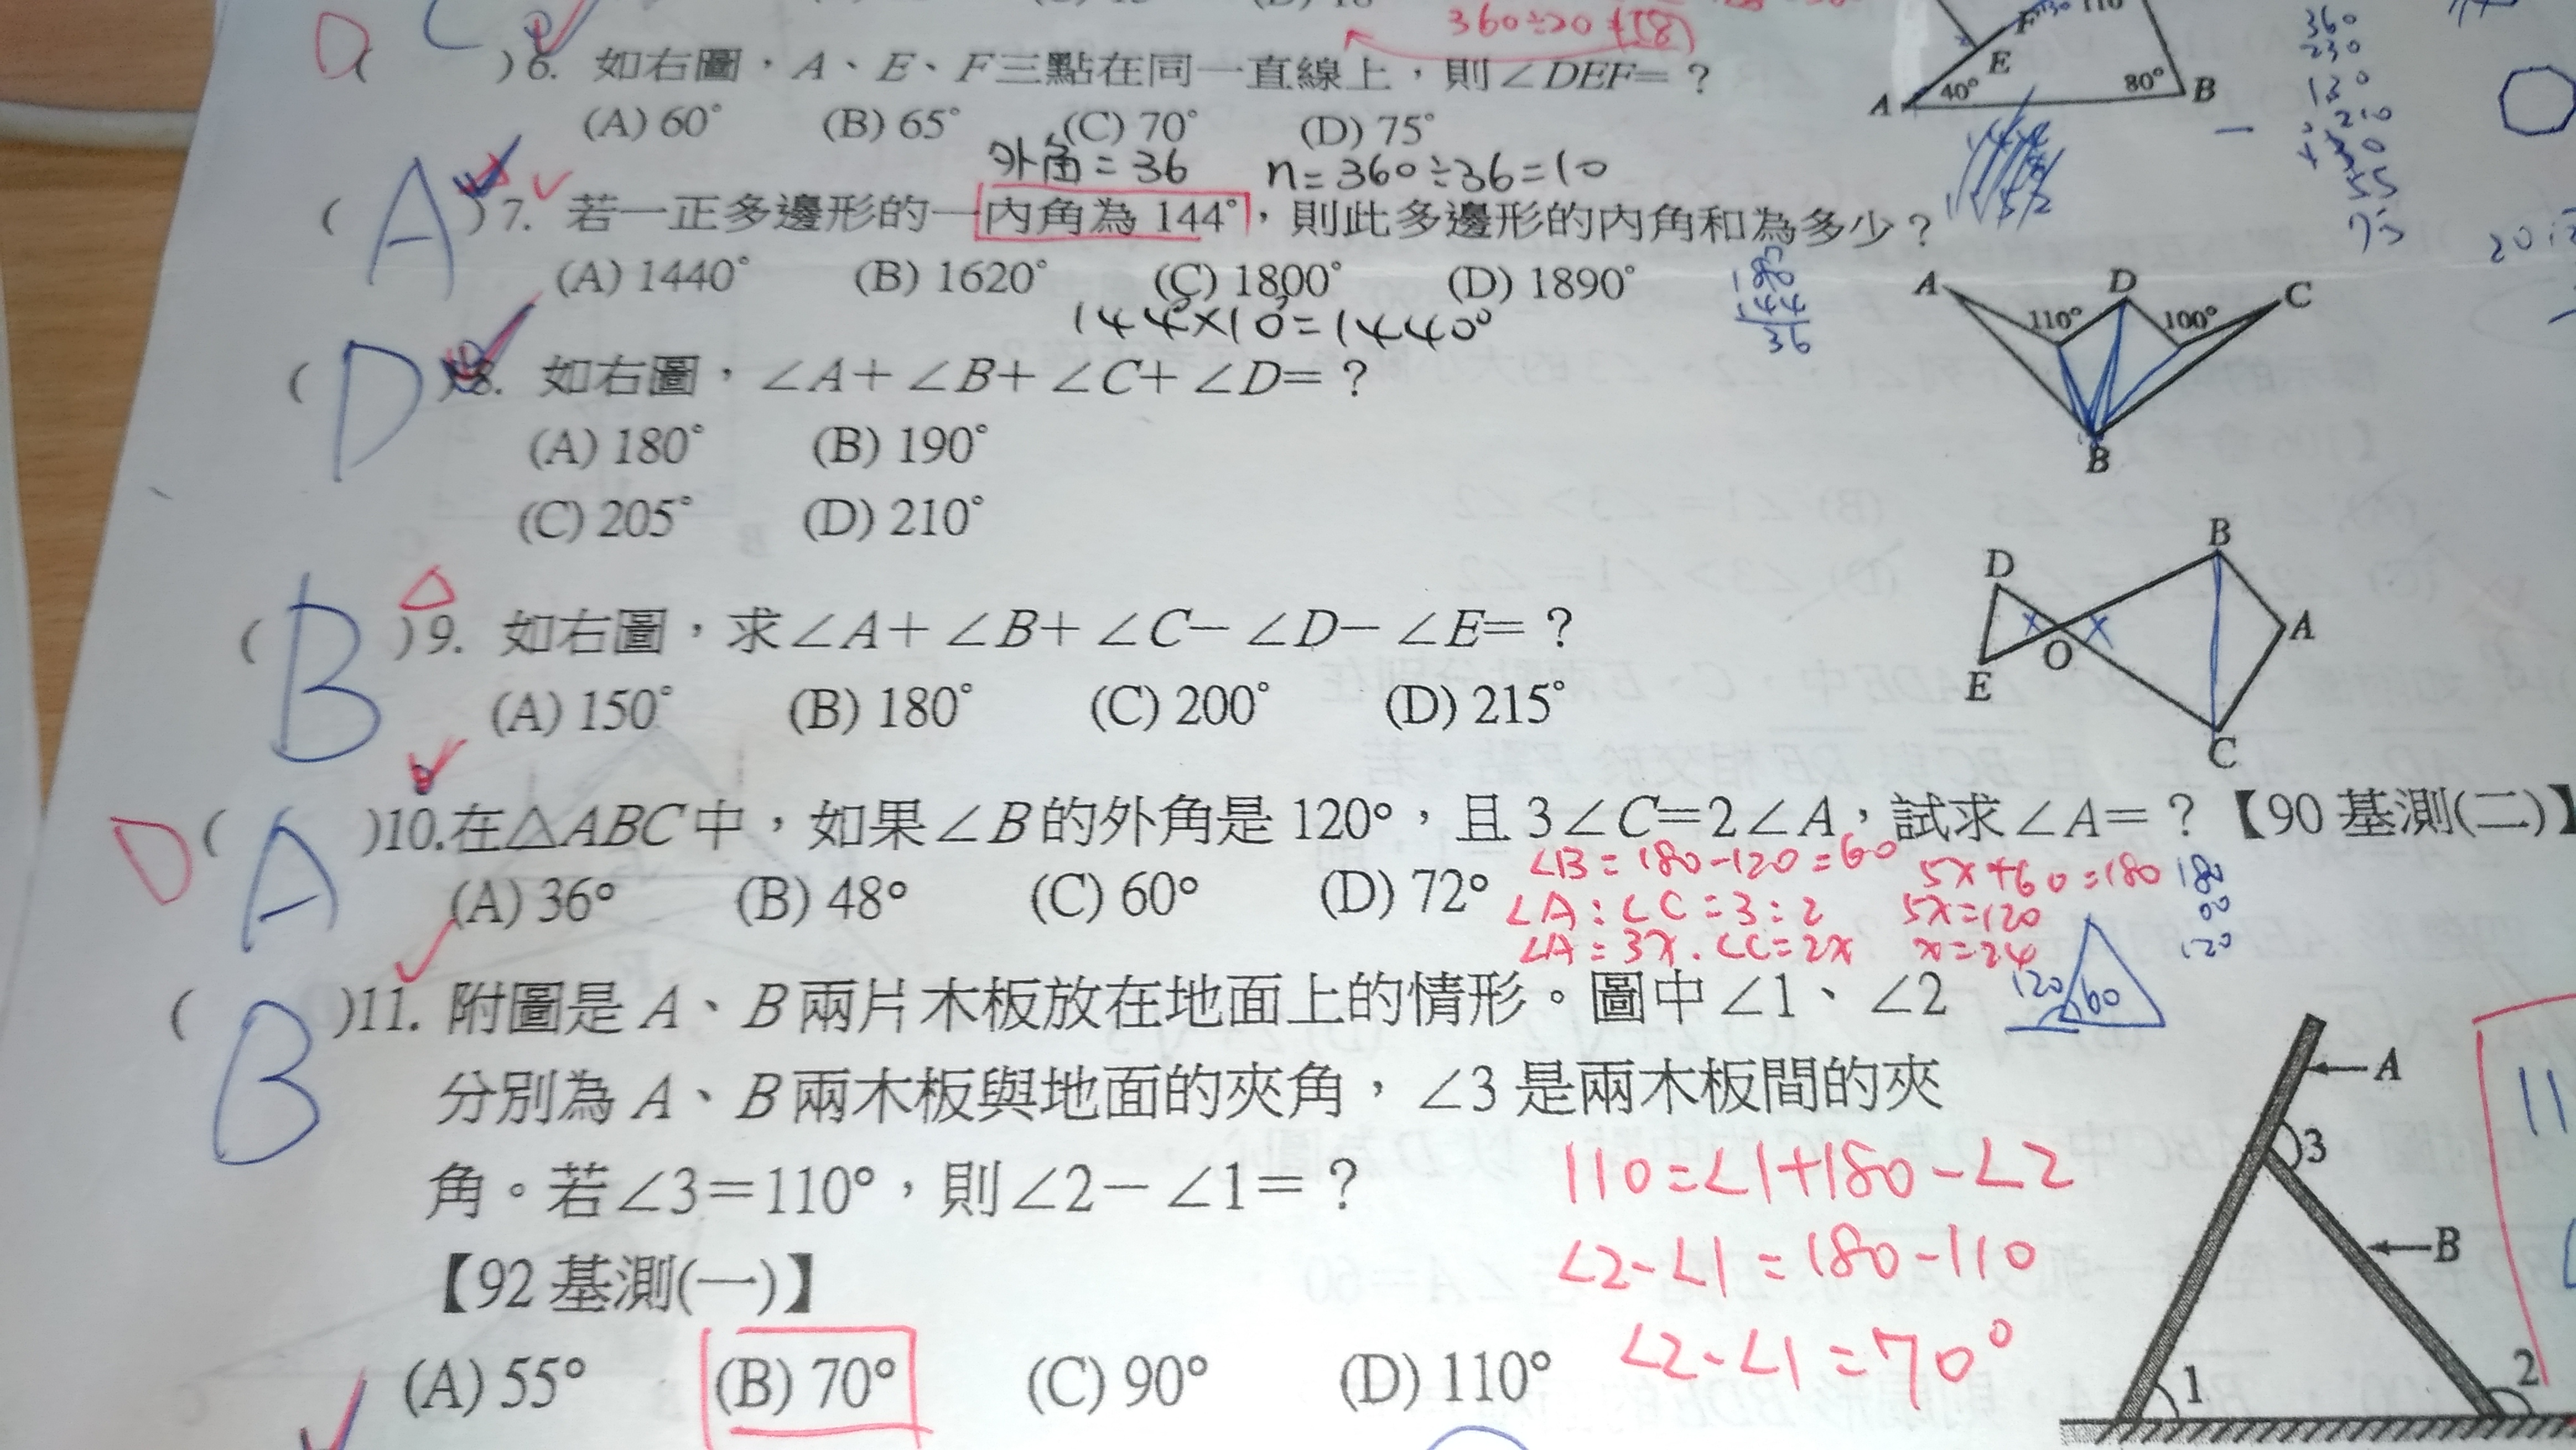 360÷20 =(18)
D( C )6. 如右圖，A、E、F三點在同一直線上，則∠DEF=？
(A) 60° (B) 65° (C) 70° (D) 75°
E F 110
A 40° 80° B
360
230
130
外角=36 n=360÷36=10
( A )7. 若一正多邊形的一內角為 144°，則此多邊形的內角和為多少？
(A) 1440° (B) 1620° (C) 1800° (D) 1890°
144°×10=1440°
180
144
36
( D )8. 如右圖，∠A+∠B+∠C+∠D=？
(A) 180° (B) 190°
(C) 205° (D) 210°
A D C
110° 100°
B
( B )9. 如右圖，求∠A+∠B+∠C-∠D-∠E=？
(A) 150° (B) 180° (C) 200° (D) 215°
B
D
x x A
O
E
C
D( A )10.在△ABC中，如果∠B的外角是120°，且3∠C=2∠A，試求∠A=？【90基測(二)】
(A) 36° (B) 48° (C) 60° (D) 72°
∠B=180-120=60 5x+60=180
∠A:∠C=3:2 5x=120
∠A=3x.∠C=2x x=24
180
60
120
120 60
( B )11. 附圖是A、B兩片木板放在地面上的情形。圖中∠1、∠2
分別為A、B兩木板與地面的夾角，∠3是兩木板間的夾
角。若∠3=110°，則∠2-∠1=？
【92基測(一)】
(A) 55° (B) 70° (C) 90° (D) 110°
110=∠1+180-∠2
∠2-∠1=180-110
∠2-∠1=70°
A
3
B
1 2